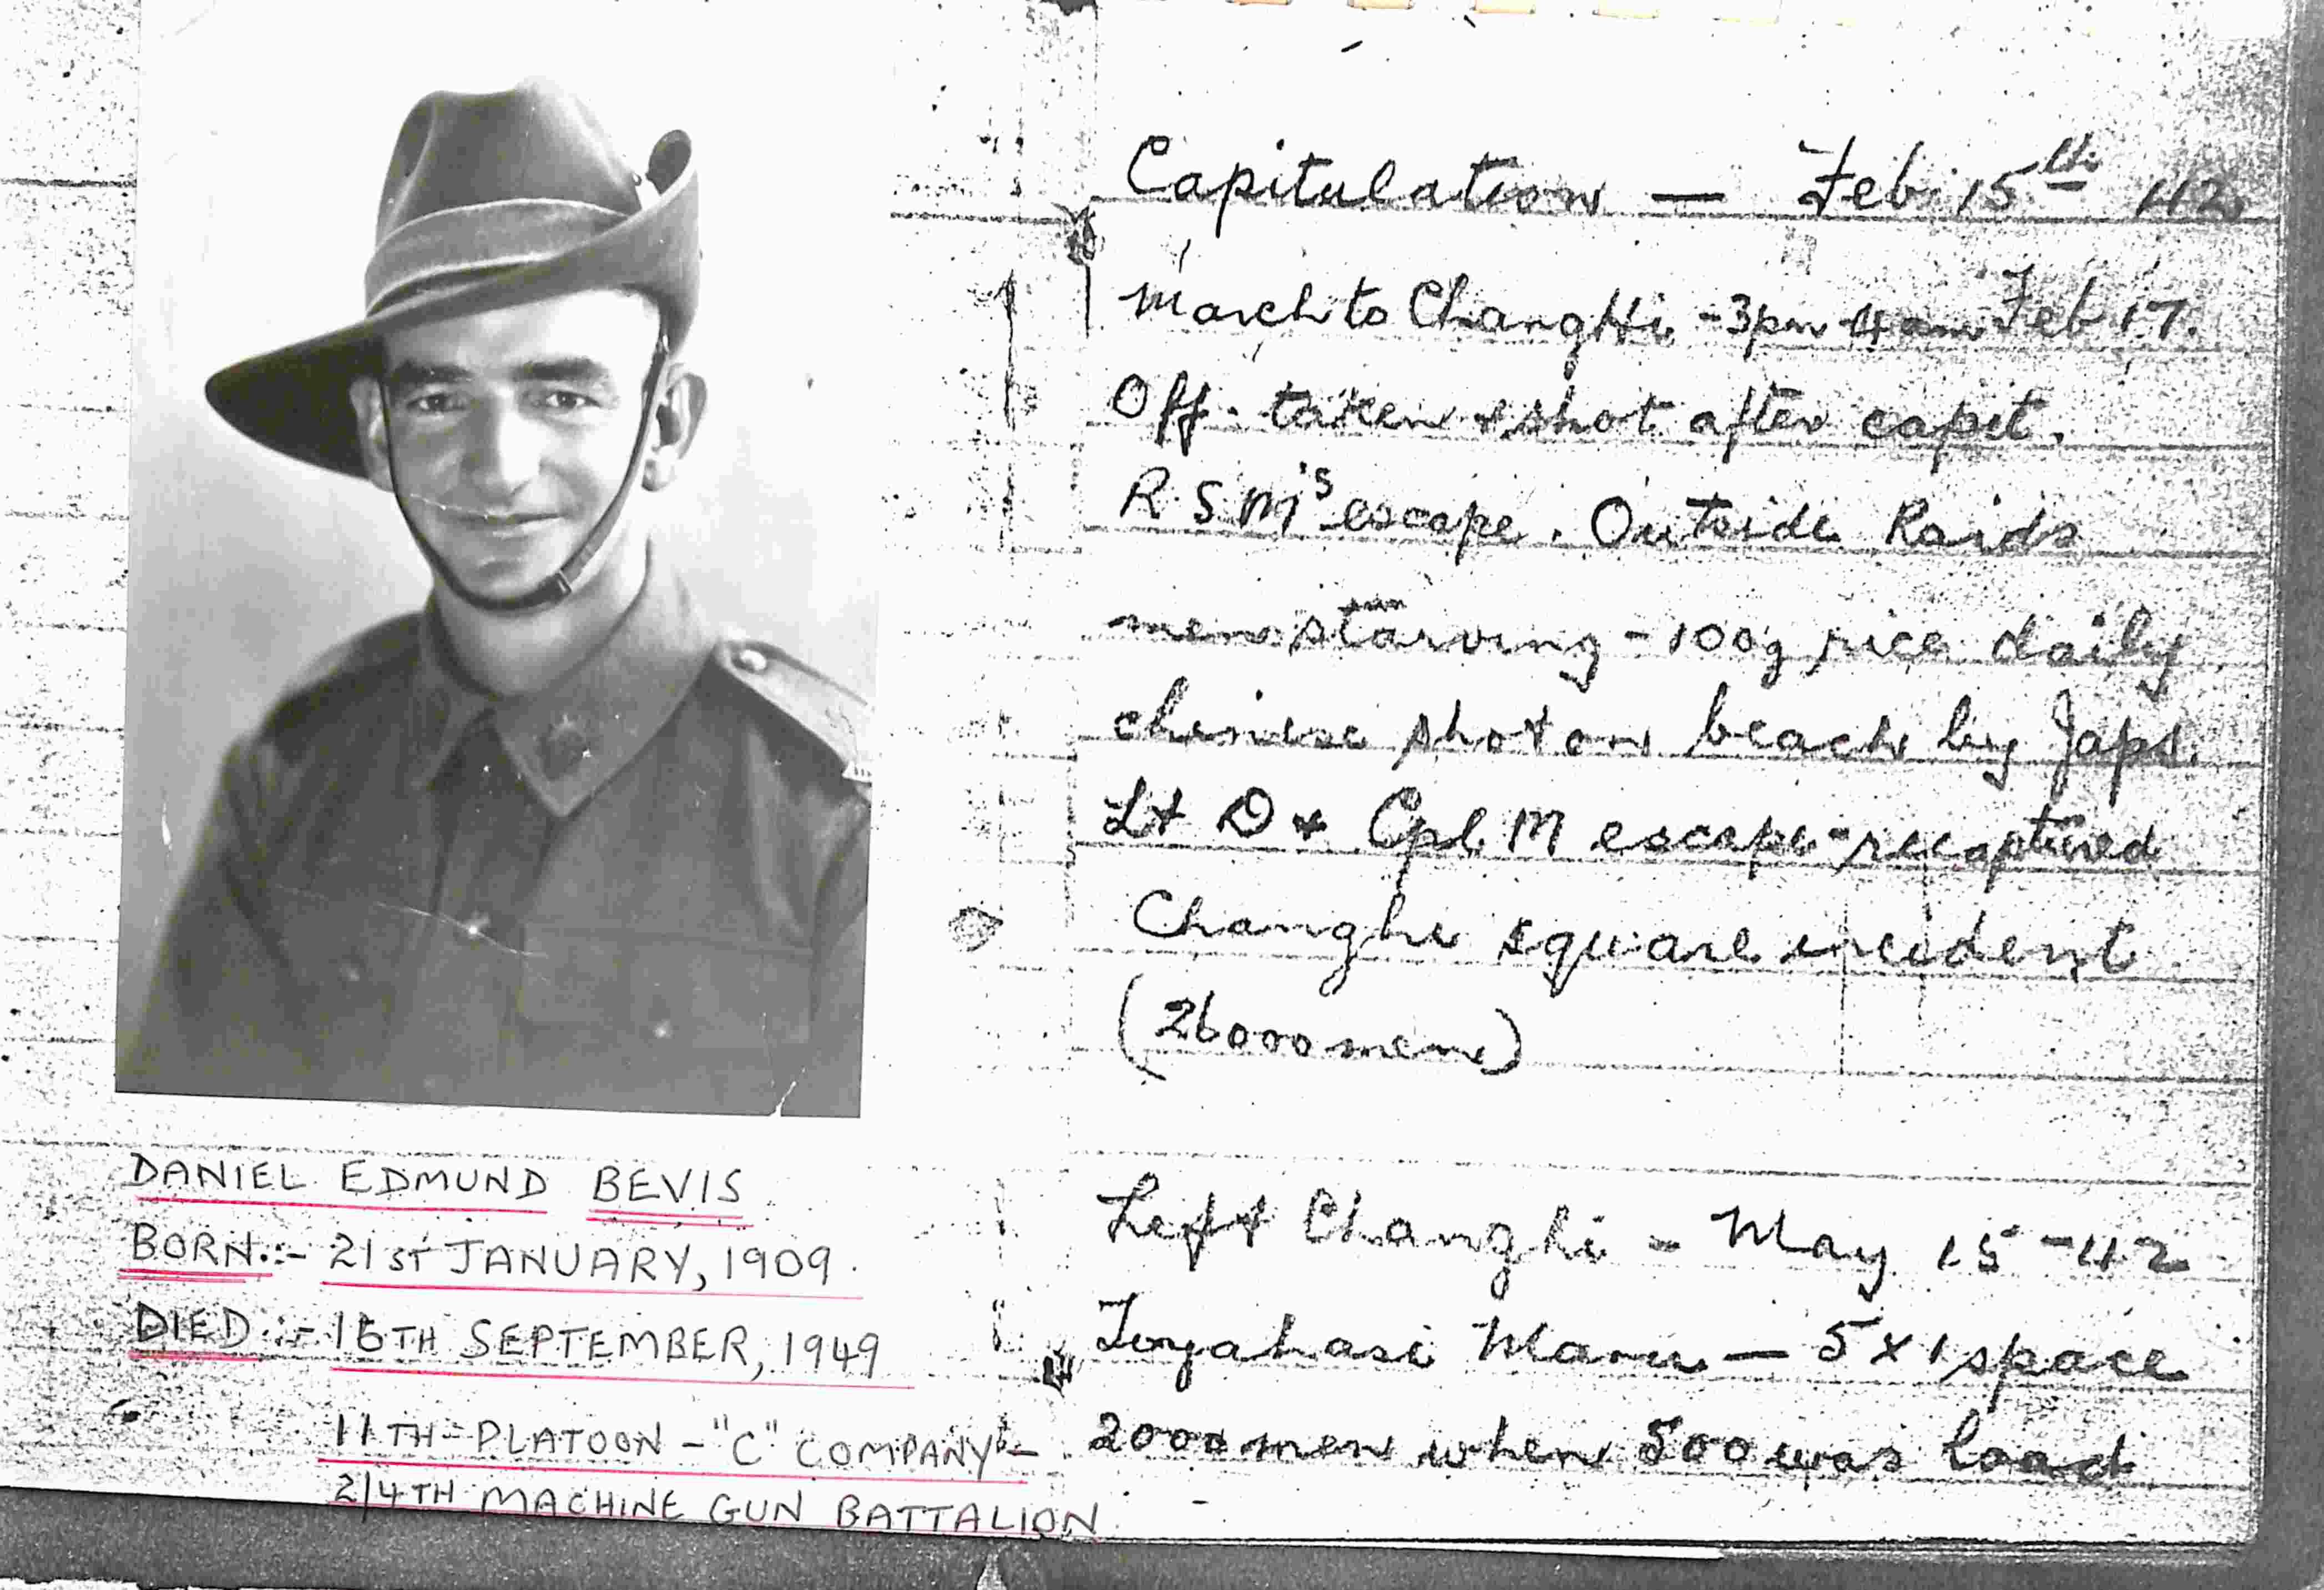 DANIEL EDMUND BEVIS
BORN:- 21ST JANUARY, 1909.
DIED:- 16TH SEPTEMBER, 1949
11TH PLATOON - "C" COMPANY -
2/4TH MACHINE GUN BATTALION
Capitulation — Feb 15th 42
March to Changhi - 3pm - 4am Feb 17.
Off. taken & shot after capit.
R S M's escape. Outside Raids
men starving - 100g rice daily
chinese shot on beach by Japs.
Lt D & Cpl M escape - recaptured
Changhi square incident
(26000 men)
Left Changhi - May 15 - 42
Toyahasi Maru — 5 x 1 space
2000 men when 500 was load